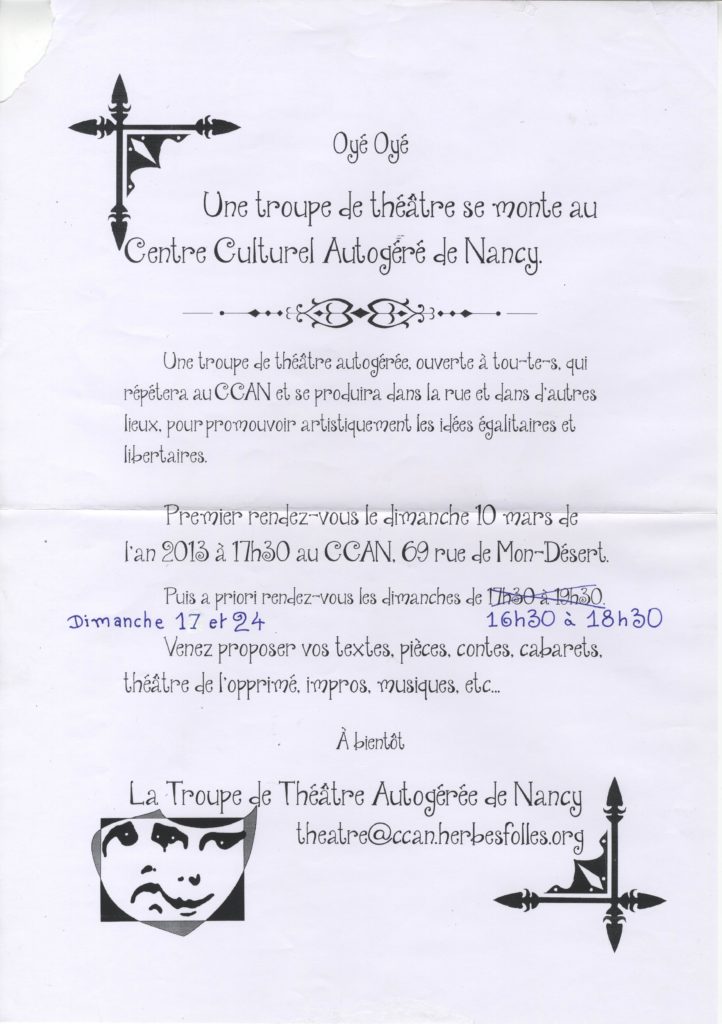 Oyé Oyé
Une troupe de théâtre se monte au
Centre Culturel Autogéré de Nancy.
Une troupe de théâtre autogérée, ouverte à tou-te-s, qui
répétera au CCAN et se produira dans la rue et dans d'autres
lieux, pour promouvoir artistiquement les idées égalitaires et
libertaires.
Premier rendez-vous le dimanche 10 mars de
l'an 2013 à 17h30 au CCAN, 69 rue de Mon-Désert.
Puis a priori rendez-vous les dimanches de 17h30 à 19h30.
Dimanche 17 et 24 16h30 à 18h30
Venez proposer vos textes, pièces, contes, cabarets,
théâtre de l'opprimé, impros, musiques, etc...
À bientôt
La Troupe de Théâtre Autogérée de Nancy
theatre@ccan.herbesfolles.org